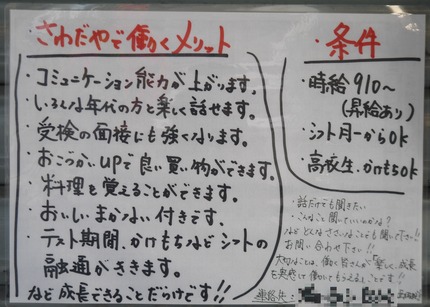 ・さわだやで働くメリット
・コミュニケーション能力が上がります。
・いろんな年代の方と楽しく話せます。
・受検の面接にも強くなります。
・おこづかいupで良い買い物ができます。
・料理を覚えることができます。
・おいしいまかない付きです。
・テスト期間、かけもちなどシフトの
融通がききます。
など成長できることだらけです!!
・条件
・時給910〜
(昇給あり)
・シフト月一からok
・高校生、かけもちok
・話だけでも聞きたい
・こんなこと聞いていいのかな?
などどんなささいなことでも聞いて下さい!!
お問い合わせ下さい!!
大切なことは、働く皆さんが「楽しく、成長
を実感して働いてもらえる」ことです!!
連絡先: